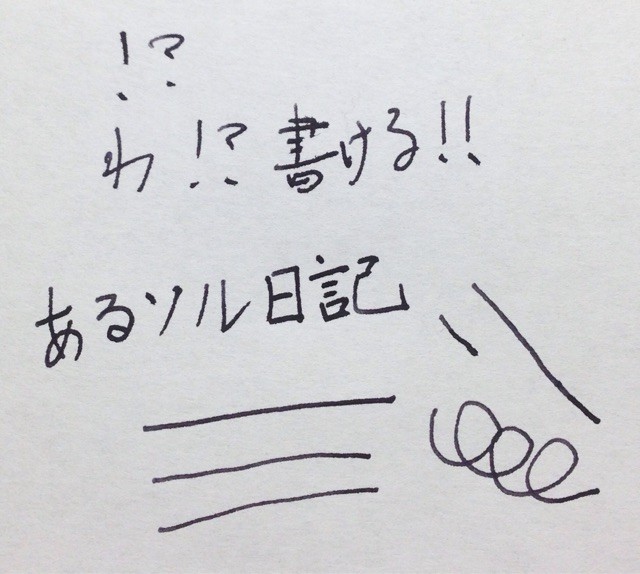 !?
わ!?書ける!!
あるソル日記